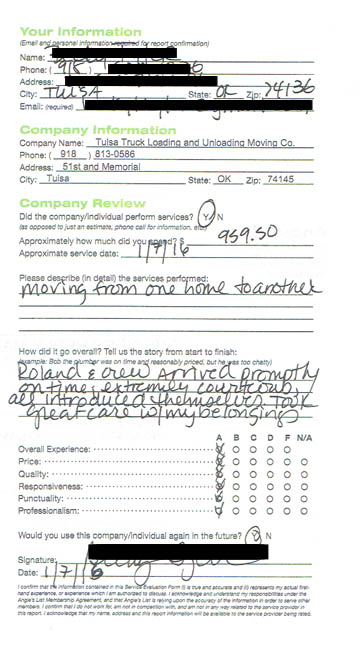 Your Information
(Email and personal information required for report confirmation)
Name:
Phone: (918)
Address:
City: TULSA State: OK Zip: 74136
Email: (required)
Company Information
Company Name: Tulsa Truck Loading and Unloading Moving Co.
Phone: ( 918 ) 813-0586
Address: 51st and Memorial
City: Tulsa State: OK Zip: 74145
Company Review
Did the company/individual perform services? Y/N
(as opposed to just an estimate, phone call for information, etc)
Approximately how much did you spend? $ 959.50
Approximate service date: 1/7/16
Please describe (in detail) the services performed:
moving from one home to another
How did it go overall? Tell us the story from start to finish:
(example: Bob the plumber was on time and reasonably priced, but he was too chatty)
Roland & crew arrived promptly
on time, extremely courteous,
all introduced themselves. Took
great care w/ my belongings
A B C D F N/A
Overall Experience:
Price:
Quality:
Responsiveness:
Punctuality:
Professionalism:
Would you use this company/individual again in the future? Y/N
Signature:
Date: 1/7/16
I confirm that the information contained in this Service Evaluation Form (i) is true and accurate and (ii) represents my actual first-
hand experience, or experience which I am authorized to discuss. I acknowledge and understand my responsibilities under the
Angie's List Membership Agreement, and that Angie's List is relying upon the accuracy of the information in order to serve other
members. I confirm that I do not work for, am not in competition with, and am not in any way related to the service provider in
this report. I acknowledge that my name, address and this report information will be available to the service provider being rated.